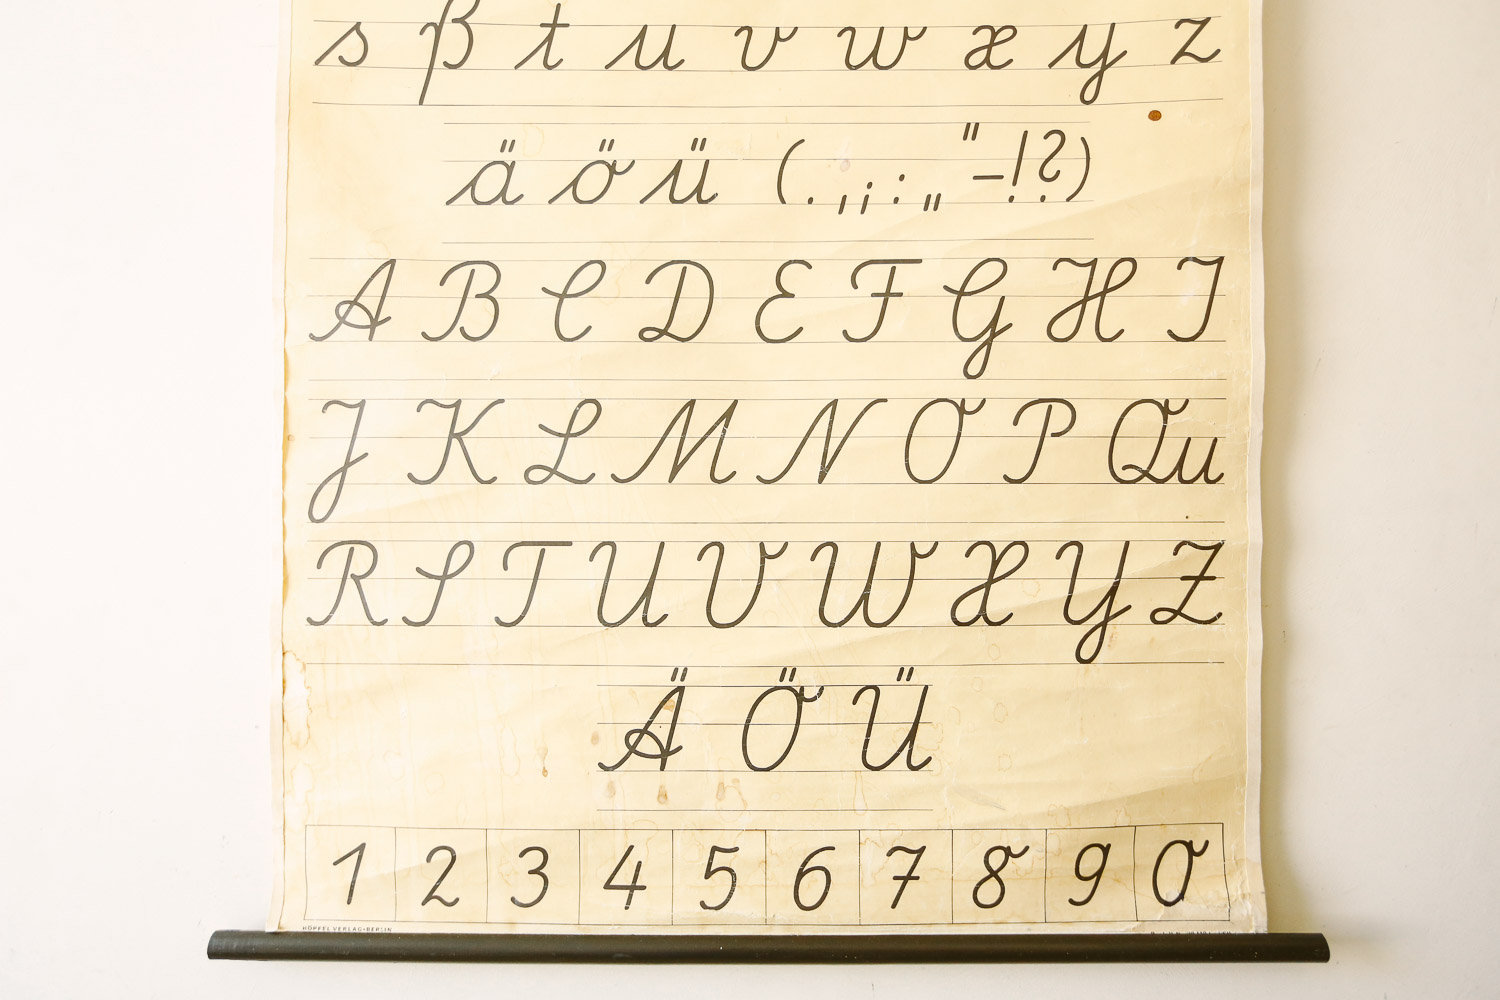 s ß t u v w x y z
ä ö ü ( . , ; : „ " – ! ? )
A B C D E F G H I
J K L M N O P Qu
R S T U V W X Y Z
Ä Ö Ü
1 2 3 4 5 6 7 8 9 0
HÖPFEL VERLAG-BERLIN